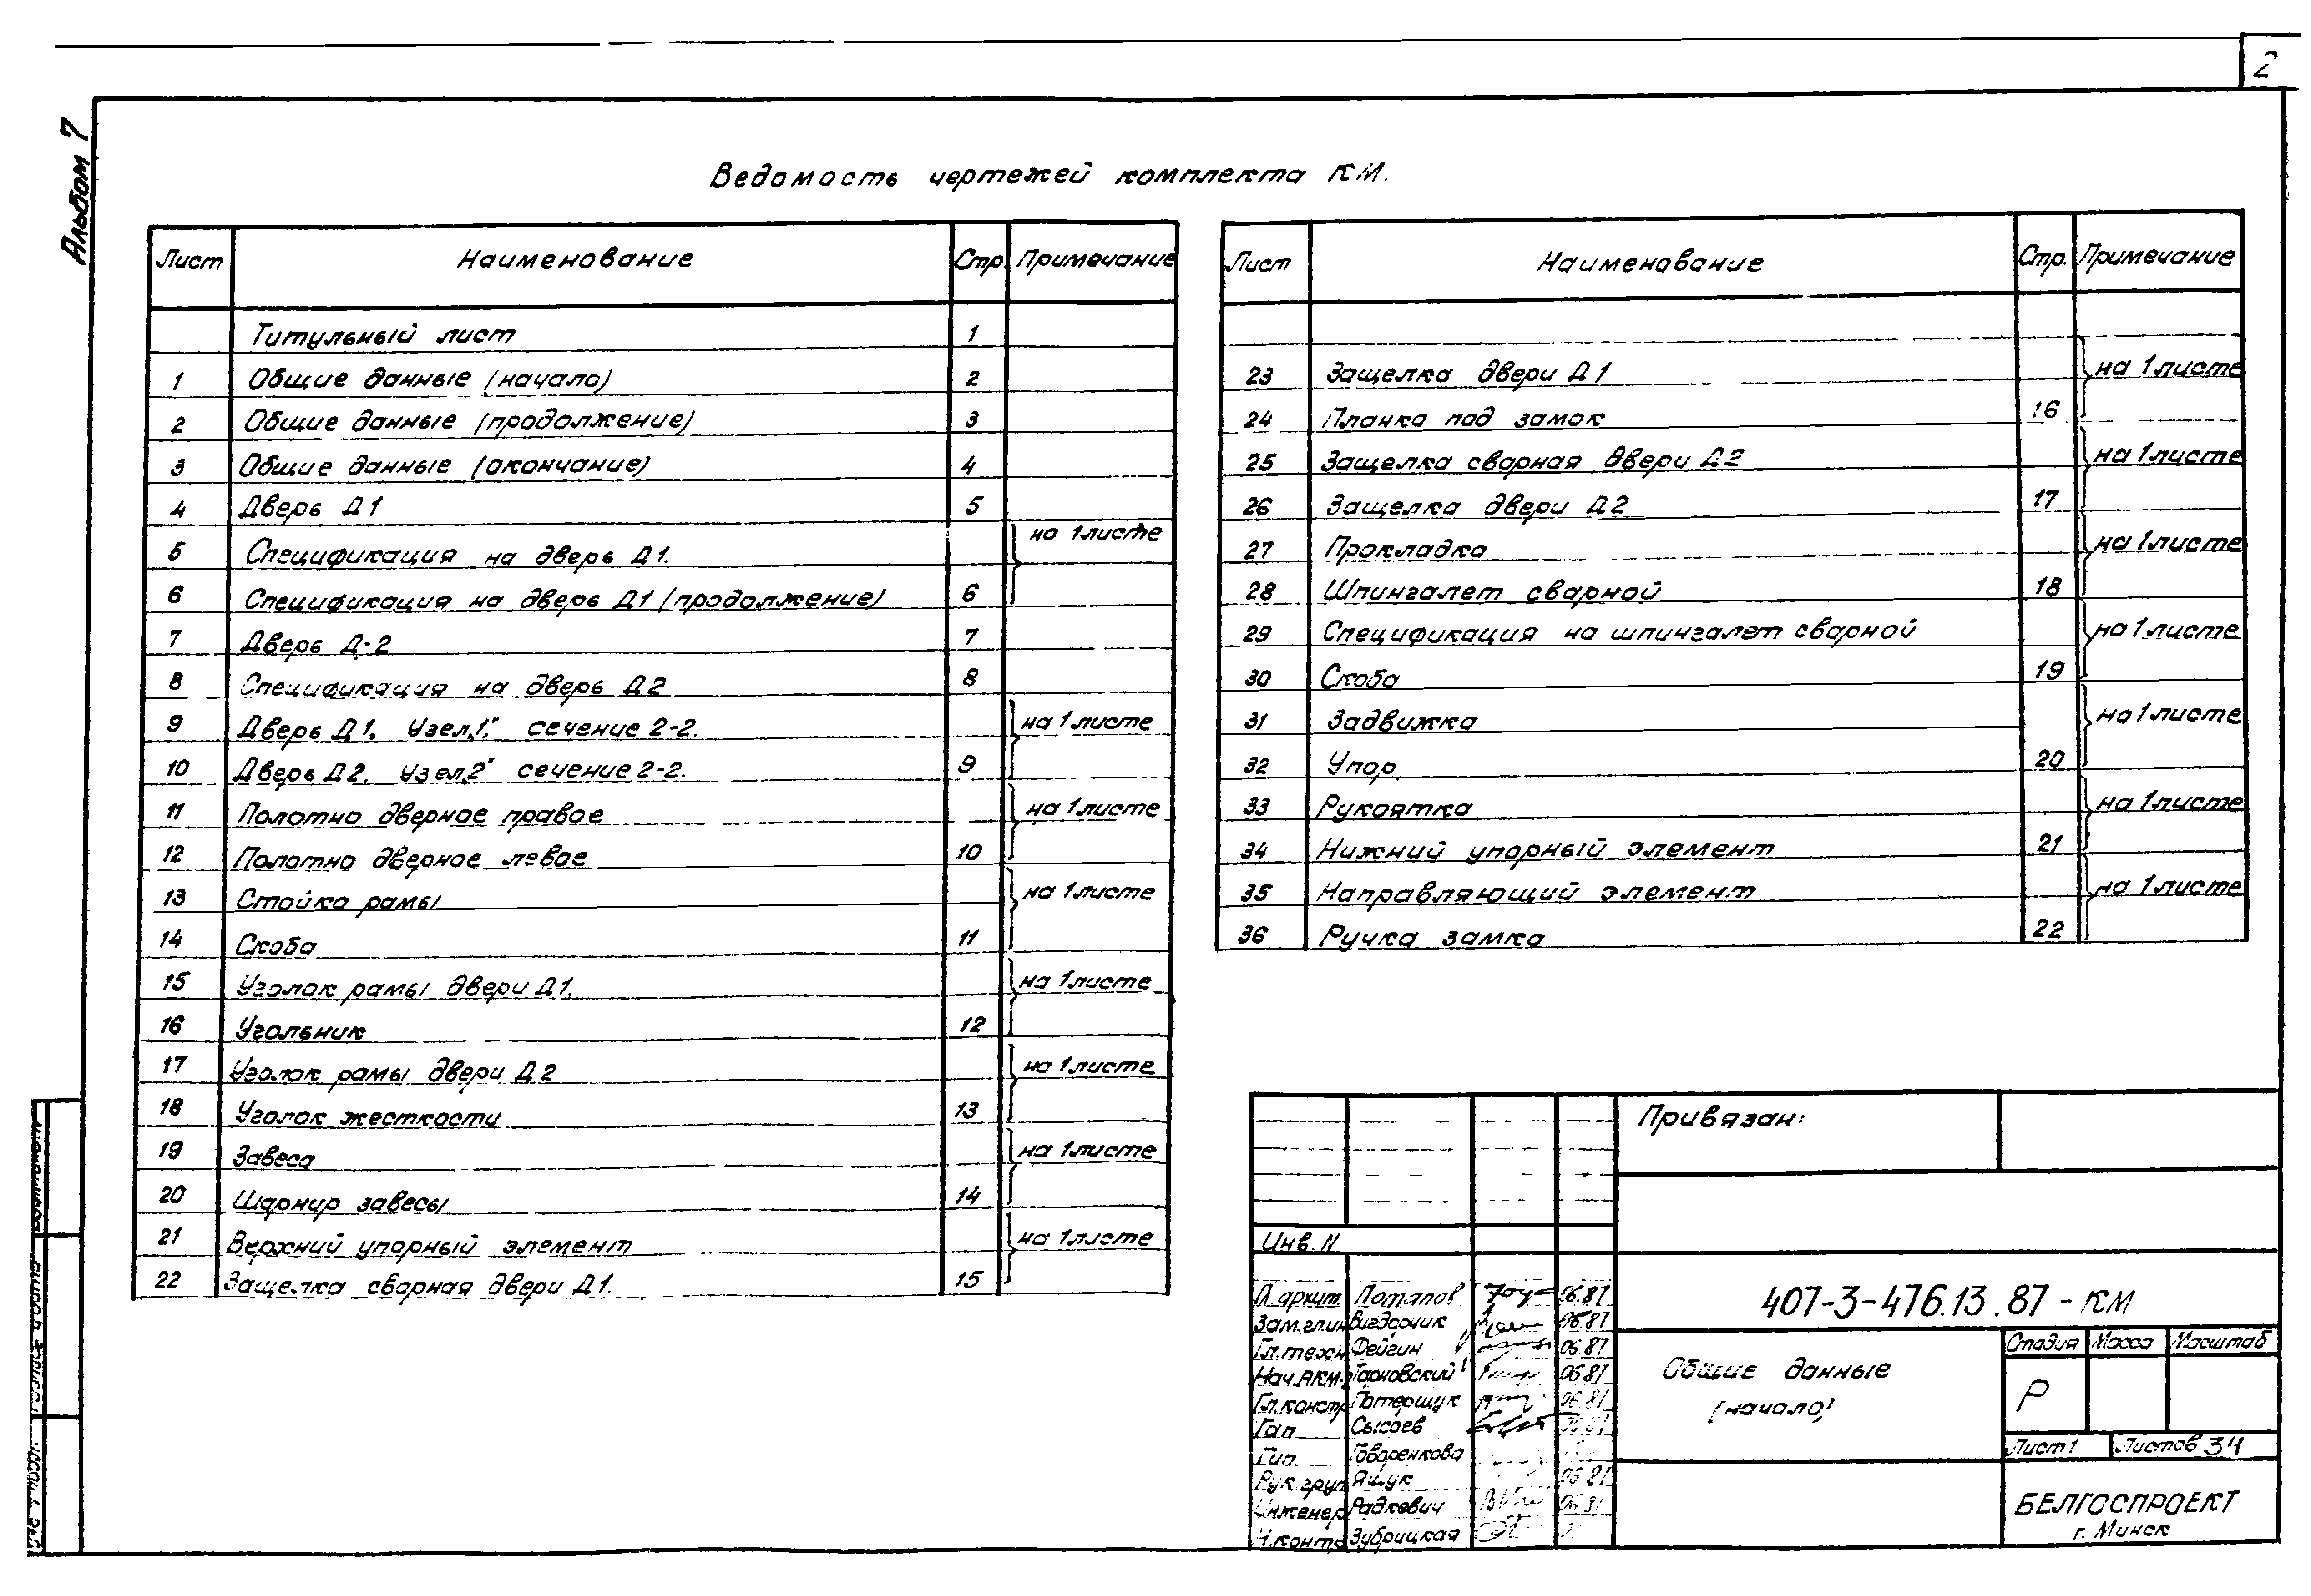 2
Альбом 7
Ведомость чертежей комплекта КМ.
Лист Наименование Стр. Примечание
Титульный лист 1
1 Общие данные (начало) 2
2 Общие данные (продолжение) 3
3 Общие данные (окончание) 4
4 Дверь Д1 5
5 Спецификация на дверь Д1. на 1 листе
6 Спецификация на дверь Д1 (продолжение) 6
7 Дверь Д-2 7
8 Спецификация на дверь Д2 8
9 Дверь Д1. Узел „1." сечение 2-2. на 1 листе
10 Дверь Д2. Узел „2" сечение 2-2. 9
11 Полотно дверное правое на 1 листе
12 Полотно дверное левое 10
13 Стойка рамы на 1 листе
14 Скоба 11
15 Уголок рамы двери Д1. на 1 листе
16 Угольник 12
17 Уголок рамы двери Д2 на 1 листе
18 Уголок жесткости 13
19 Завеса на 1 листе
20 Шарнир завесы 14
21 Верхний упорный элемент на 1 листе
22 Защелка сварная двери Д1. 15
Лист Наименование Стр. Примечание
23 Защелка двери Д1 на 1 листе
24 Планка под замок 16
25 Защелка сварная двери Д2 на 1 листе
26 Защелка двери Д2 17
27 Прокладка на 1 листе
28 Шпингалет сварной 18
29 Спецификация на шпингалет сварной на 1 листе
30 Скоба 19
31 Задвижка на 1 листе
32 Упор 20
33 Рукоятка на 1 листе
34 Нижний упорный элемент 21
35 Направляющий элемент на 1 листе
36 Ручка замка 22
Привязан:
Инв. N
407-3-476.13.87-КМ
Гл. архит. Потапов 06.87
Зам.гл.инж Вигдорчик 06.87
Гл.техн Фейгин 06.87
Нач.АКМ-2 Тарновский 06.87
Гл.констр Потерщук 06.87
Гап Сысоев
Гип Говоренкова
Рук.груп Ящук 06.87
Инженер Радкевич 06.87
Н.контр Зубрицкая
Общие данные
(начало)
Стадия Масса Масштаб
Р
Лист 1 Листов 34
БЕЛГОСПРОЕКТ
г. Минск